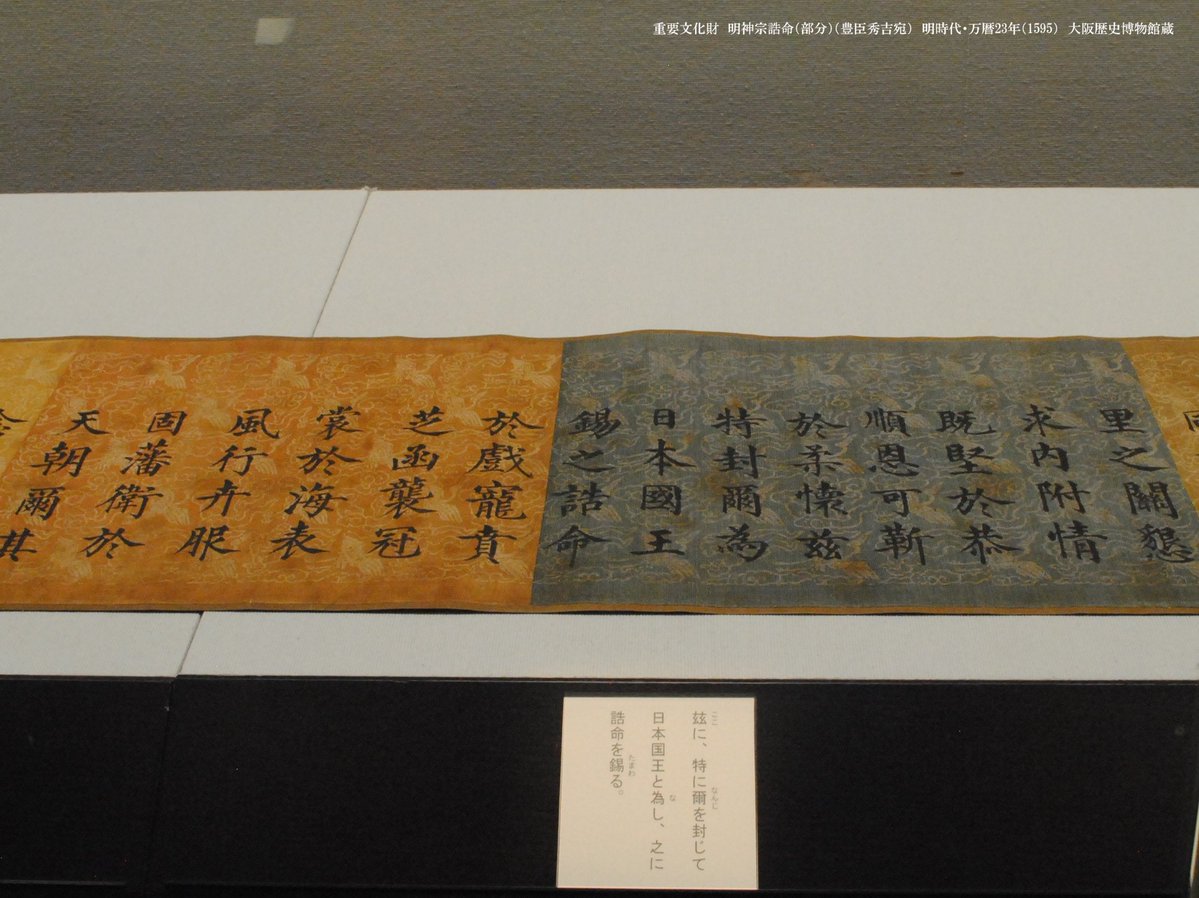 重要文化財 明神宗誥命(部分)(豊臣秀吉宛) 明時代・万暦23年(1595) 大阪歴史博物館蔵
里之關懇
求内附情
既堅於恭
順恩可靳
於柔懷茲
特封爾為
日本國王
錫之誥命
於戲寵賁
芝函襲冠
裳於海表
風行卉服
固藩衛於
天朝爾其
念
茲に、特に爾を封じて
日本国王と為し、之に
誥命を錫る。
ここ
なんじ
な
たまわ